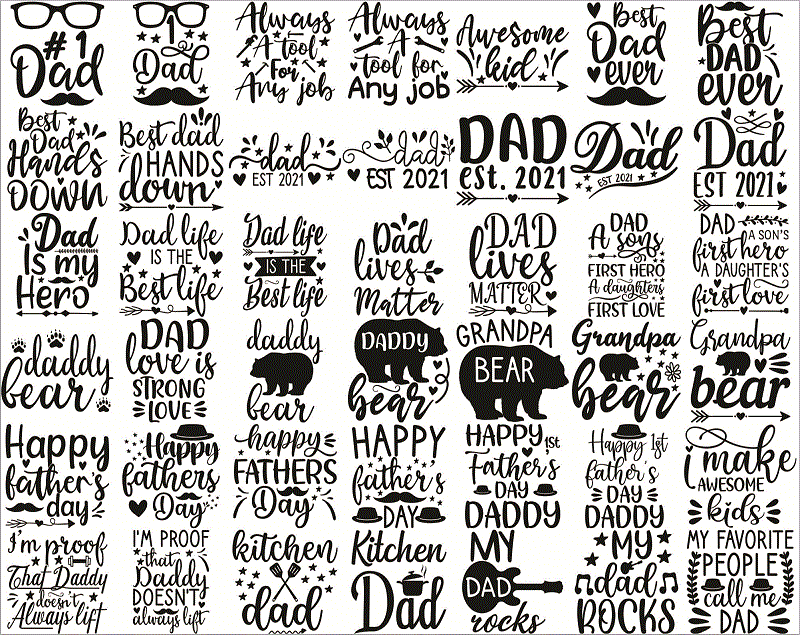 #1
Dad
1
Dad
Always
A tool
For
Any job
Always
A
tool for
Any job
Awesome
kid
Best
Dad
ever
Best
DAD
ever
Best
Dad
Hands
DOWN
Best dad
HANDS
down
dad
EST 2021
dad
EST 2021
DAD
est. 2021
Dad
EST 2021
Dad
EST 2021
Dad
is my
Hero
Dad life
IS THE
Best life
Dad life
IS THE
Best life
Dad
lives
Matter
DAD
lives
MATTER
DAD
A sons
FIRST HERO
A daughters
FIRST LOVE
DAD
A SON'S
first hero
A DAUGHTER'S
first love
daddy
bear
DAD
love is
STRONG
LOVE
daddy
bear
DADDY
bear
GRANDPA
BEAR
Grandpa
bear
Grandpa
bear
Happy
father's
day
Happy
fathers
Day
happy
FATHERS
Day
HAPPY
father's
DAY
HAPPY 1st
Father's
DAY
DADDY
Happy 1st
father's
DAY
DADDY
i make
AWESOME
kids
I'm proof
That Daddy
doesn't
Always lift
I'M PROOF
that
Daddy
DOESN'T
always lift
kitchen
dad
Kitchen
Dad
MY
DAD
rocks
MY
dad
ROCKS
MY FAVORITE
PEOPLE
call me
DAD